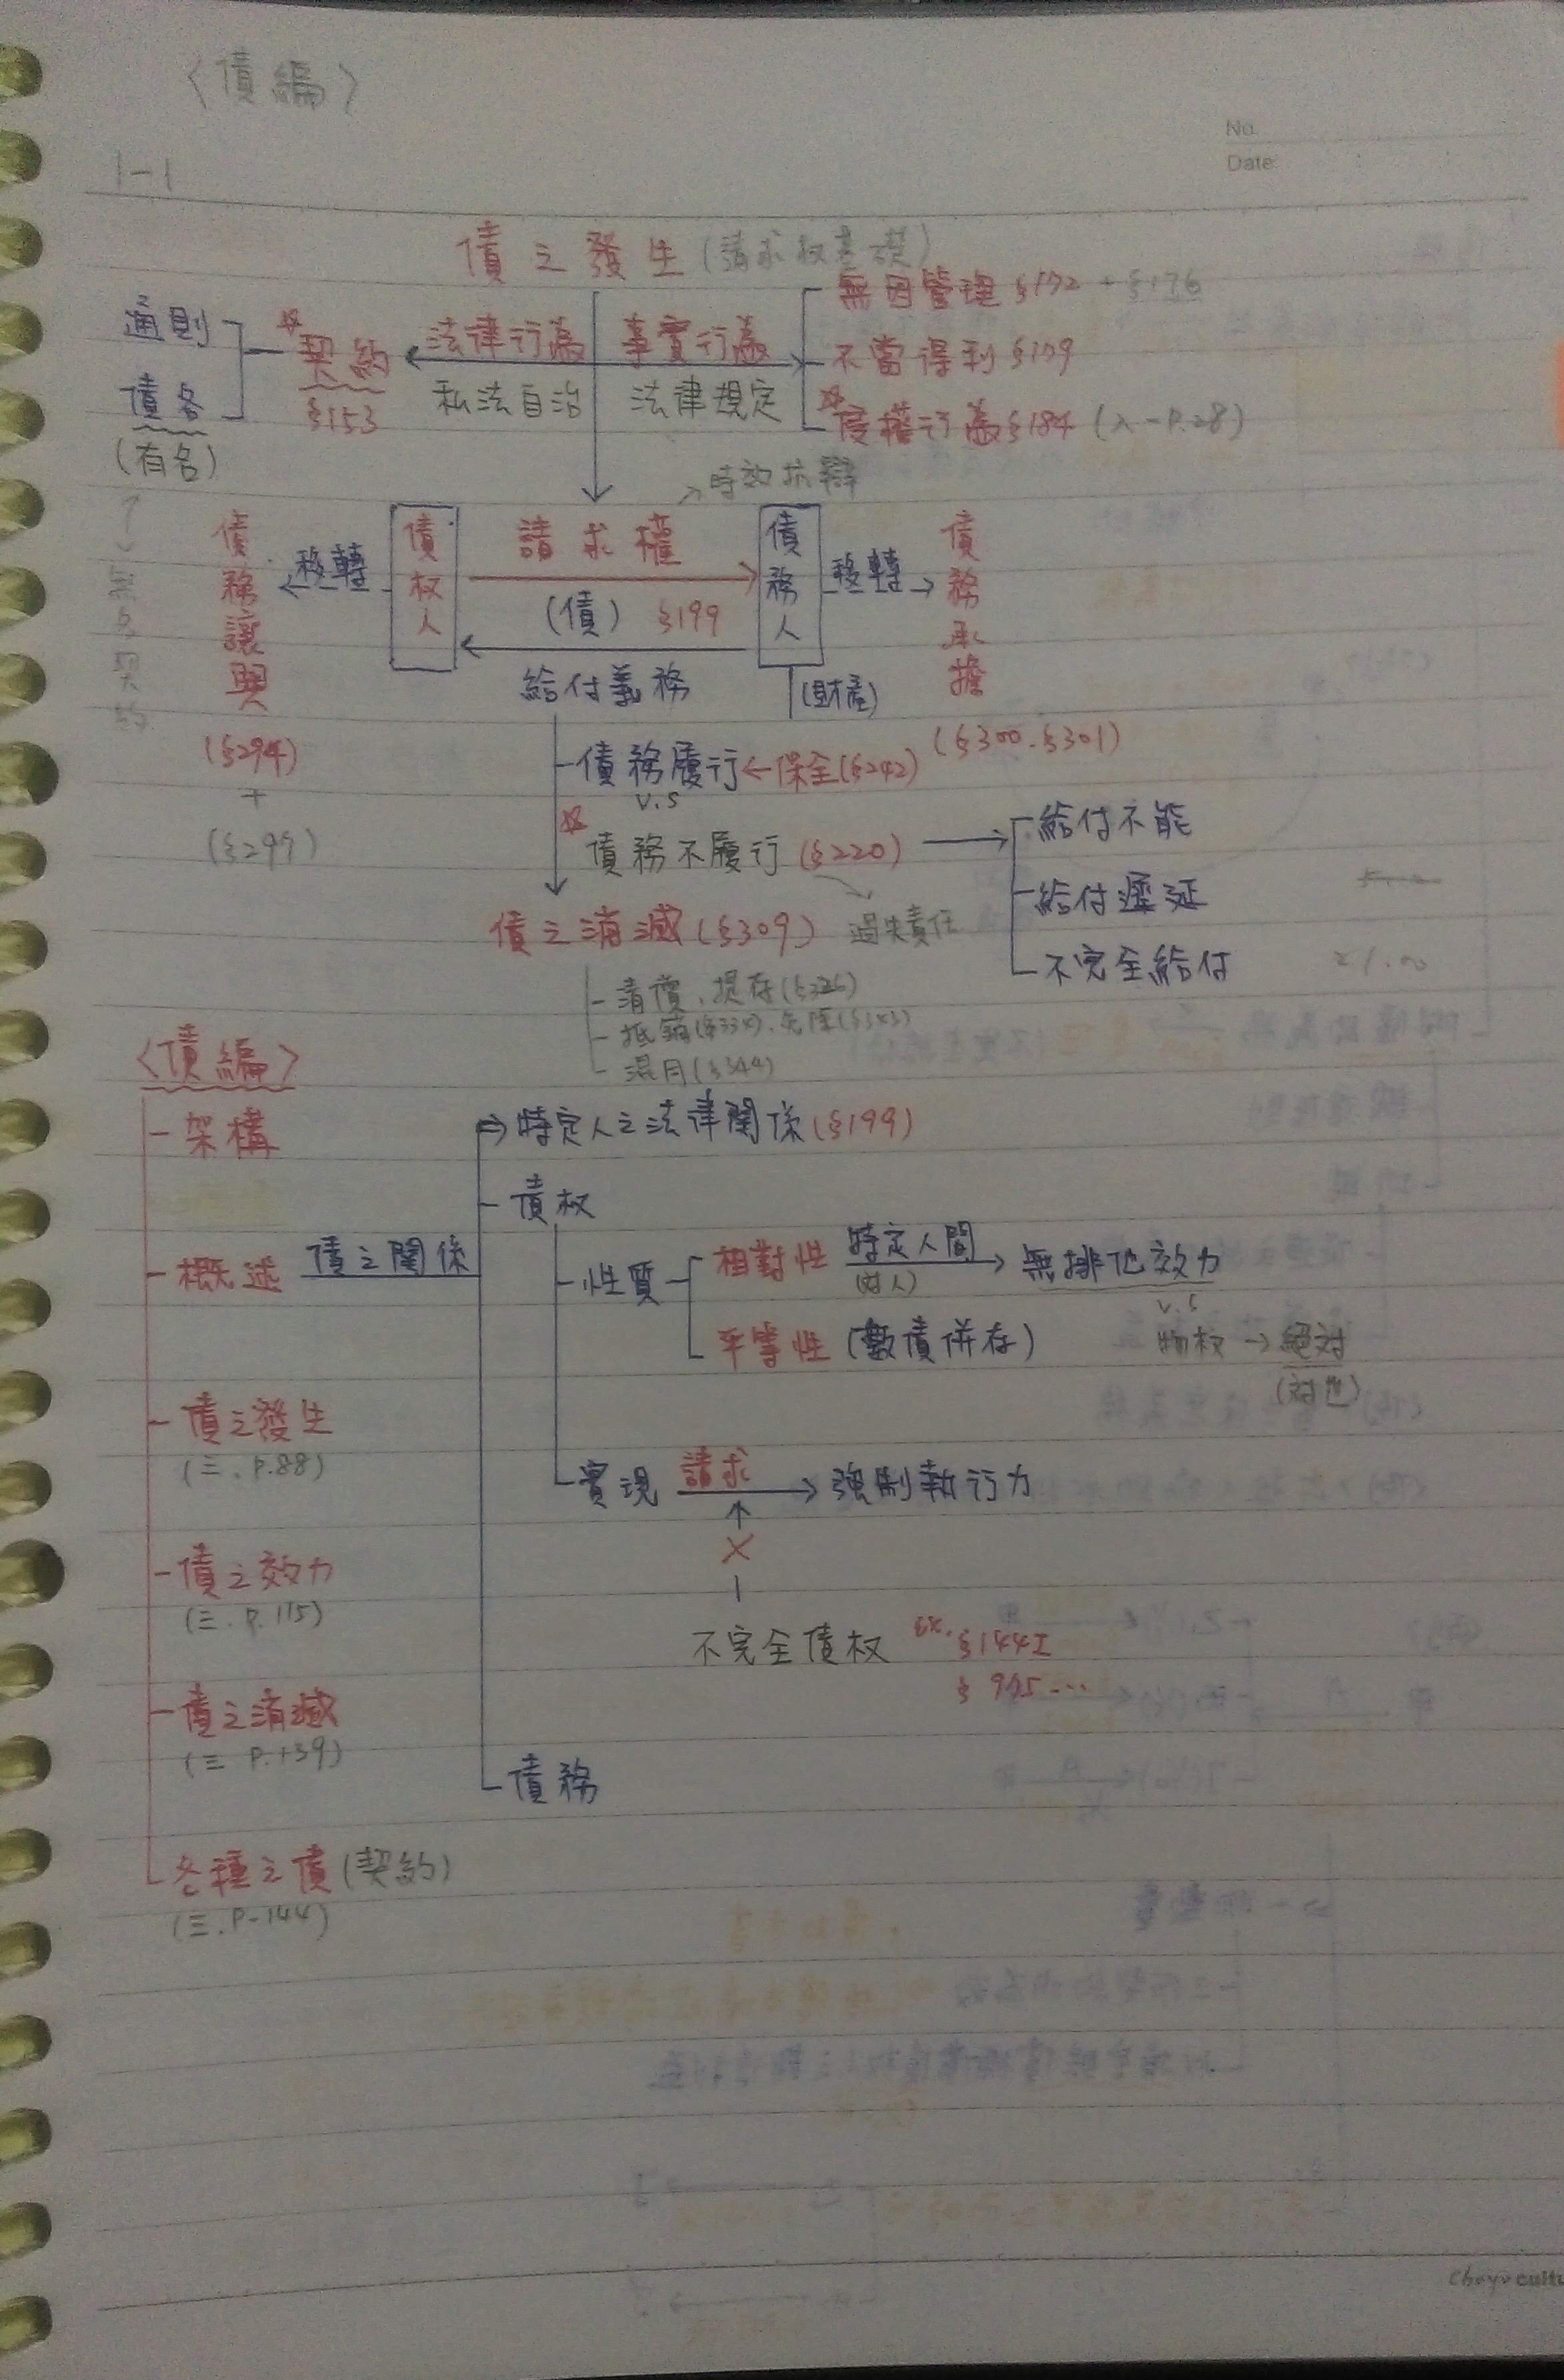 〈債編〉
No.
Date
1-1
債之發生(請求权基礎)
無因管理 §172 + §176
通則
契約
法律行為
事實行為
不當得利 §179
債各
§153
私法自治
法律規定
侵權行為 §184 (二-P.28)
(有名)
時效抗辯
無名契約
債務讓與
移轉
債权人
請求權
債務人
移轉
債務承擔
(債) §199
給付義務
(財產)
(§294)
+
(§297)
債務履行←保全(§242)
(§300.§301)
v.s
債務不履行(§220)
給付不能
給付遲延
不完全給付
債之消滅(§309)
過失責任
清償、提存(§326)
抵銷(§334)、免除(§343)
混同(§344)
〈債編〉
架構
特定人之法律關係(§199)
債权
概述
債之關係
性質
相對性
特定人間
(對人)
無排他效力
v.s
平等性(數債併存)
物权→絕对
(對世)
債之發生
(三.P.88)
實現
請求
強制執行力
X
債之效力
(三.P.115)
不完全債权
ex.
§144I
§975…
債之消滅
(三 P.139)
債務
各種之債(契約)
(三.P-144)